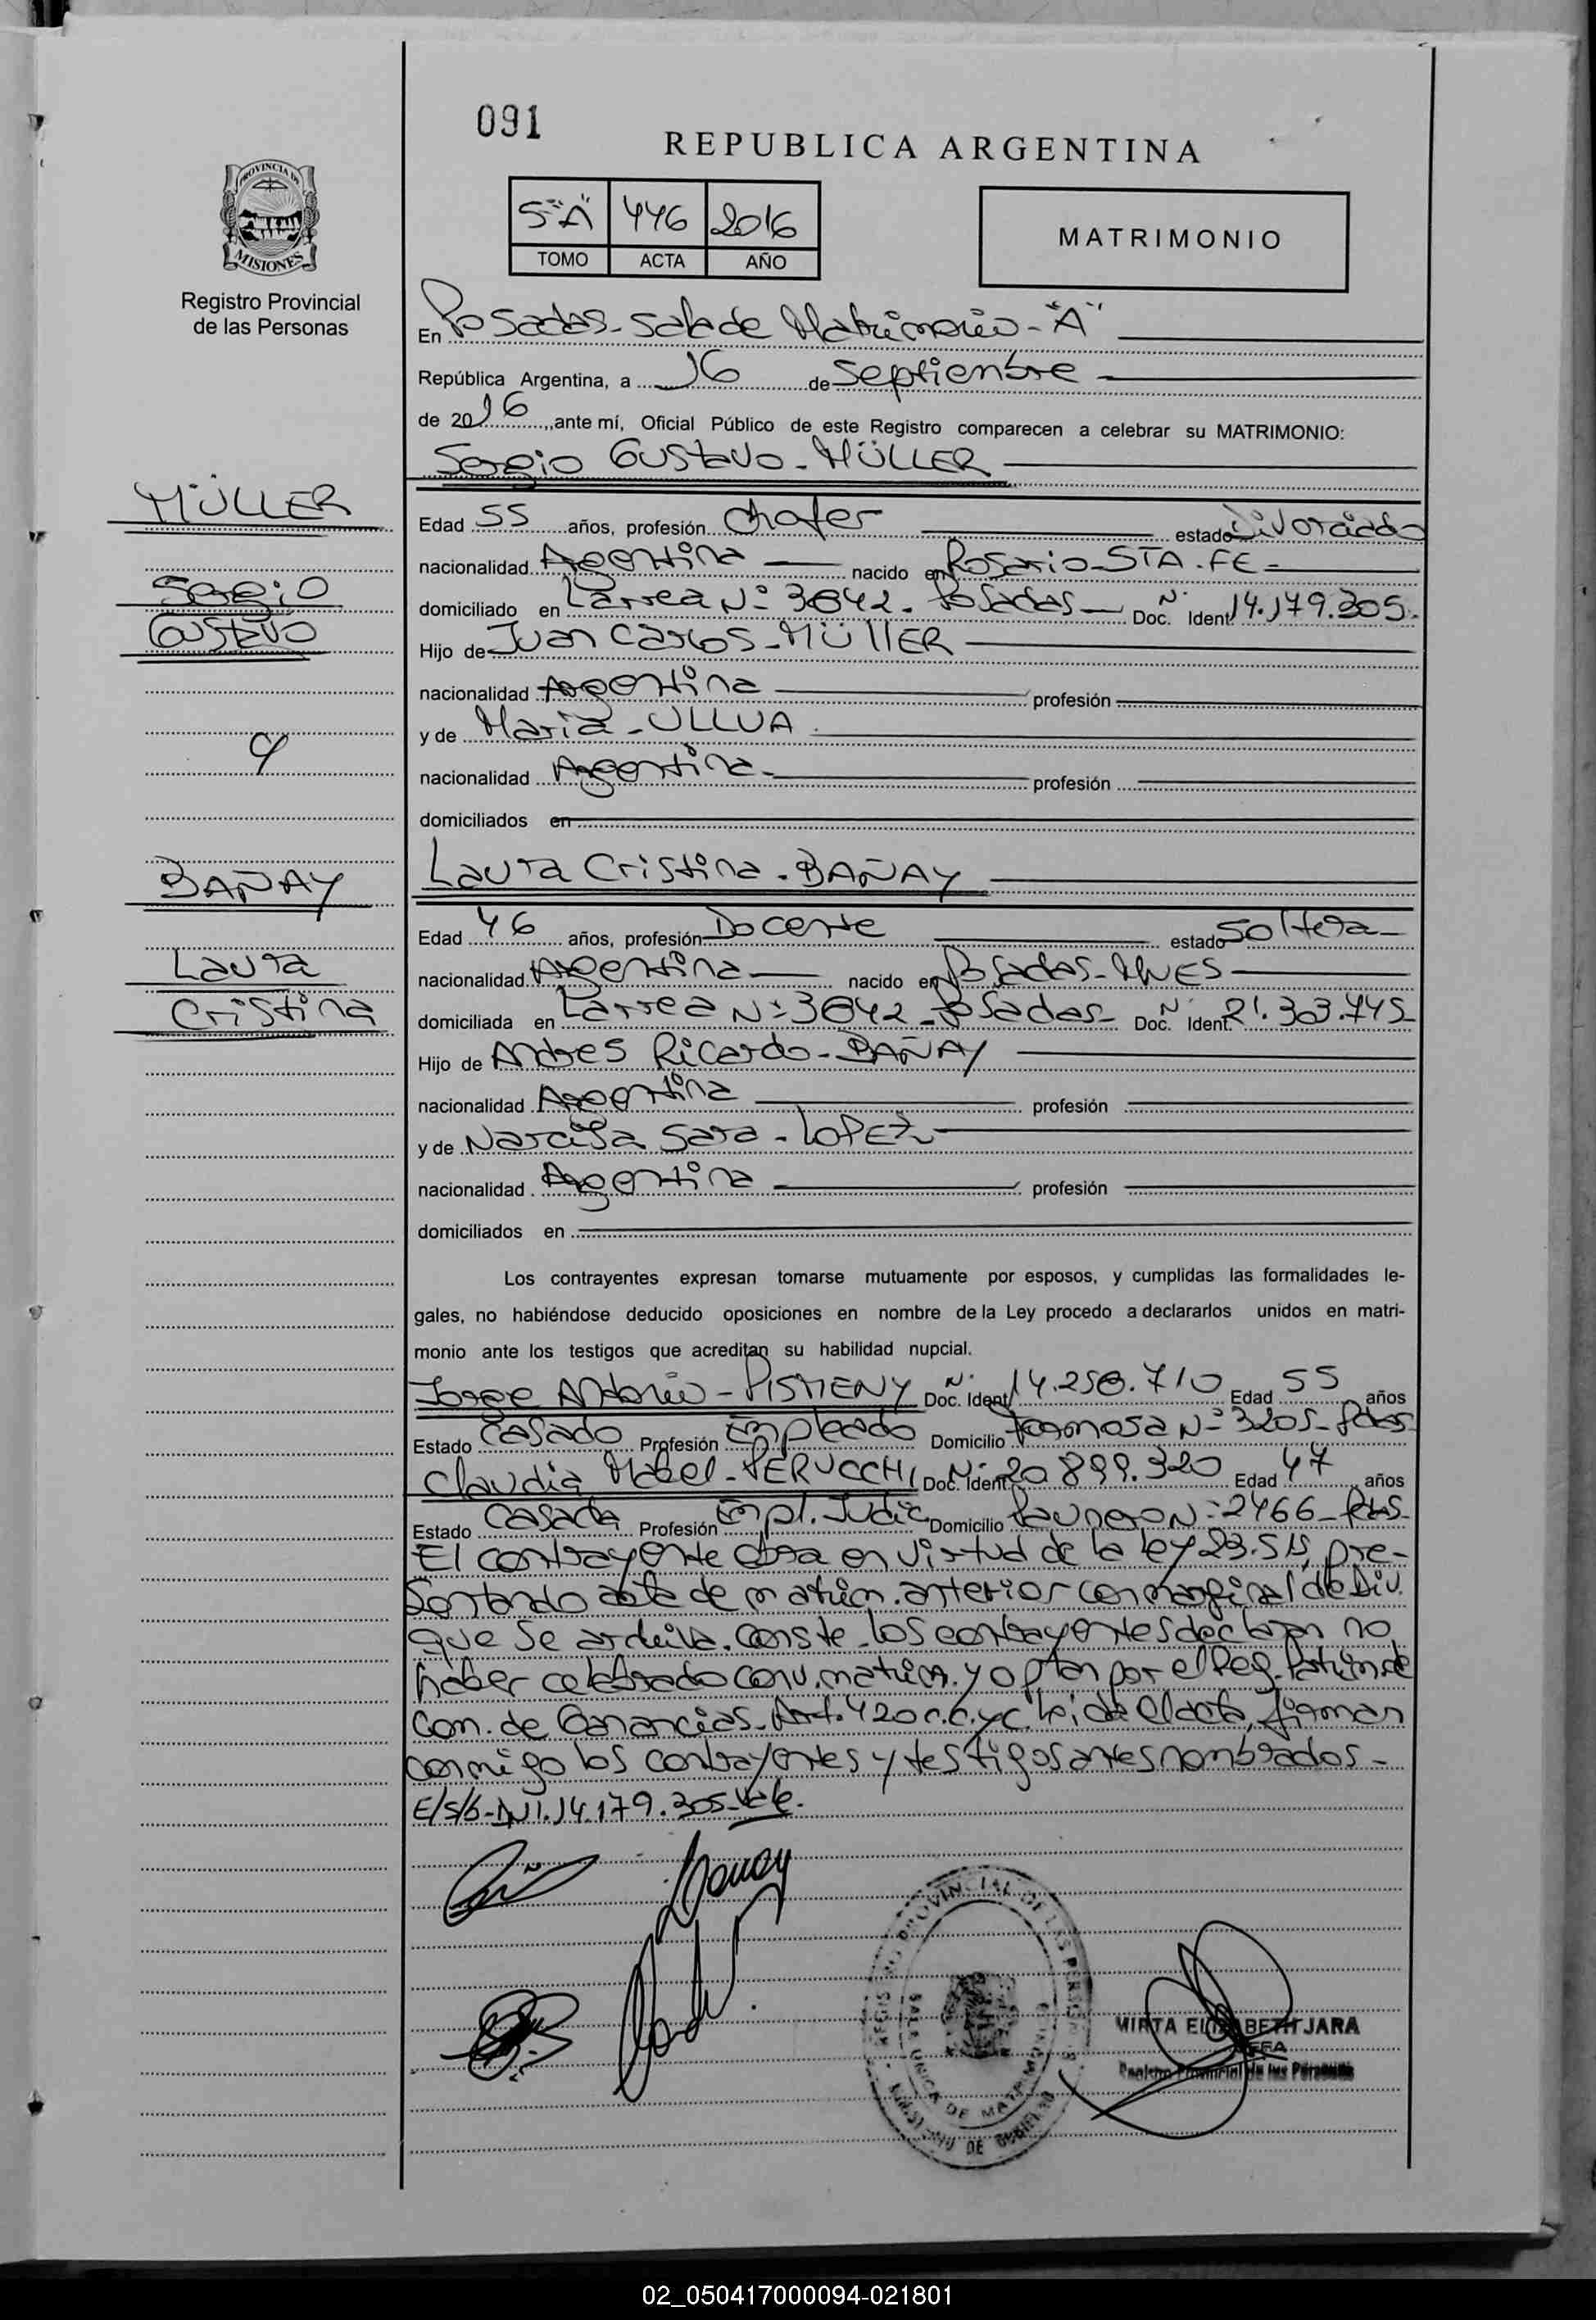 091
REPUBLICA ARGENTINA
PROVINCIA DE
MISIONES
Registro Provincial
de las Personas
5"A" 446 2016
TOMO ACTA AÑO
MATRIMONIO
En Posadas - Sala de Matrimonio - "A"
República Argentina, a 16 de Septiembre
de 2016, ante mí, Oficial Público de este Registro comparecen a celebrar su MATRIMONIO:
Sergio Gustavo - MÜLLER
MÜLLER
Sergio
Gustavo
Edad 55 años, profesión Chofer estado Divorciado
nacionalidad Argentina nacido en Rosario - STA. FE -
domiciliado en Larrea Nº 3842 - Posadas - Doc. Nº Ident. 14.179.305.
Hijo de Juan Carlos - MÜllER
nacionalidad Argentina profesión
y de Maria - ULLUA
nacionalidad Argentina - profesión
domiciliados en
y
BAÑAY
Laura
Cristina
Laura Cristina - BAÑAY
Edad 46 años, profesión Docente estado Soltera -
nacionalidad Argentina nacido en Posadas - MNES
domiciliada en Larrea Nº 3842 - Posadas - Doc. Nº Ident. 21.303.745-
Hijo de Andres Ricardo - BAÑAY
nacionalidad Argentina profesión
y de Narcisa Sara - LOPEZ
nacionalidad Argentina profesión
domiciliados en
Los contrayentes expresan tomarse mutuamente por esposos, y cumplidas las formalidades le-
gales, no habiéndose deducido oposiciones en nombre de la Ley procedo a declararlos unidos en matri-
monio ante los testigos que acreditan su habilidad nupcial.
Jorge Antonio - PISMENY Doc. Nº Ident. 14.258.710 Edad 55 años
Estado Casado Profesión Empleado Domicilio Formosa Nº 3205 - Pdas-
Claudia Mabel - PERUCCHI Doc. Nº Ident. 20.899.320 Edad 47 años
Estado Casada Profesión Empl. Judic Domicilio Nº 2466 - Pdas.
El contrayente obra en virtud de la ley 23.515, pre-
sentando acta de matrim. anterior con marginal de Div.
que se archiva. Conste. los contrayentes declaran no
haber celebrado conv. matrim. y optan por el Reg. Patrim. de
Com. de Ganancias - Art. 420 C.C. y C. leida el acta, firman
conmigo los contrayentes y testigos antes nombrados -
E/s/b - DNI. 14.179.305 - Vale.
Bañay
REGISTRO PROVINCIAL DE LAS PERSONAS
SALA UNICA DE MATRIMONIO
MINISTERIO DE GOBIERNO
MIRTA ELIZABETH JARA
JEFA
Registro Provincial de las Personas
02_050417000094-021801